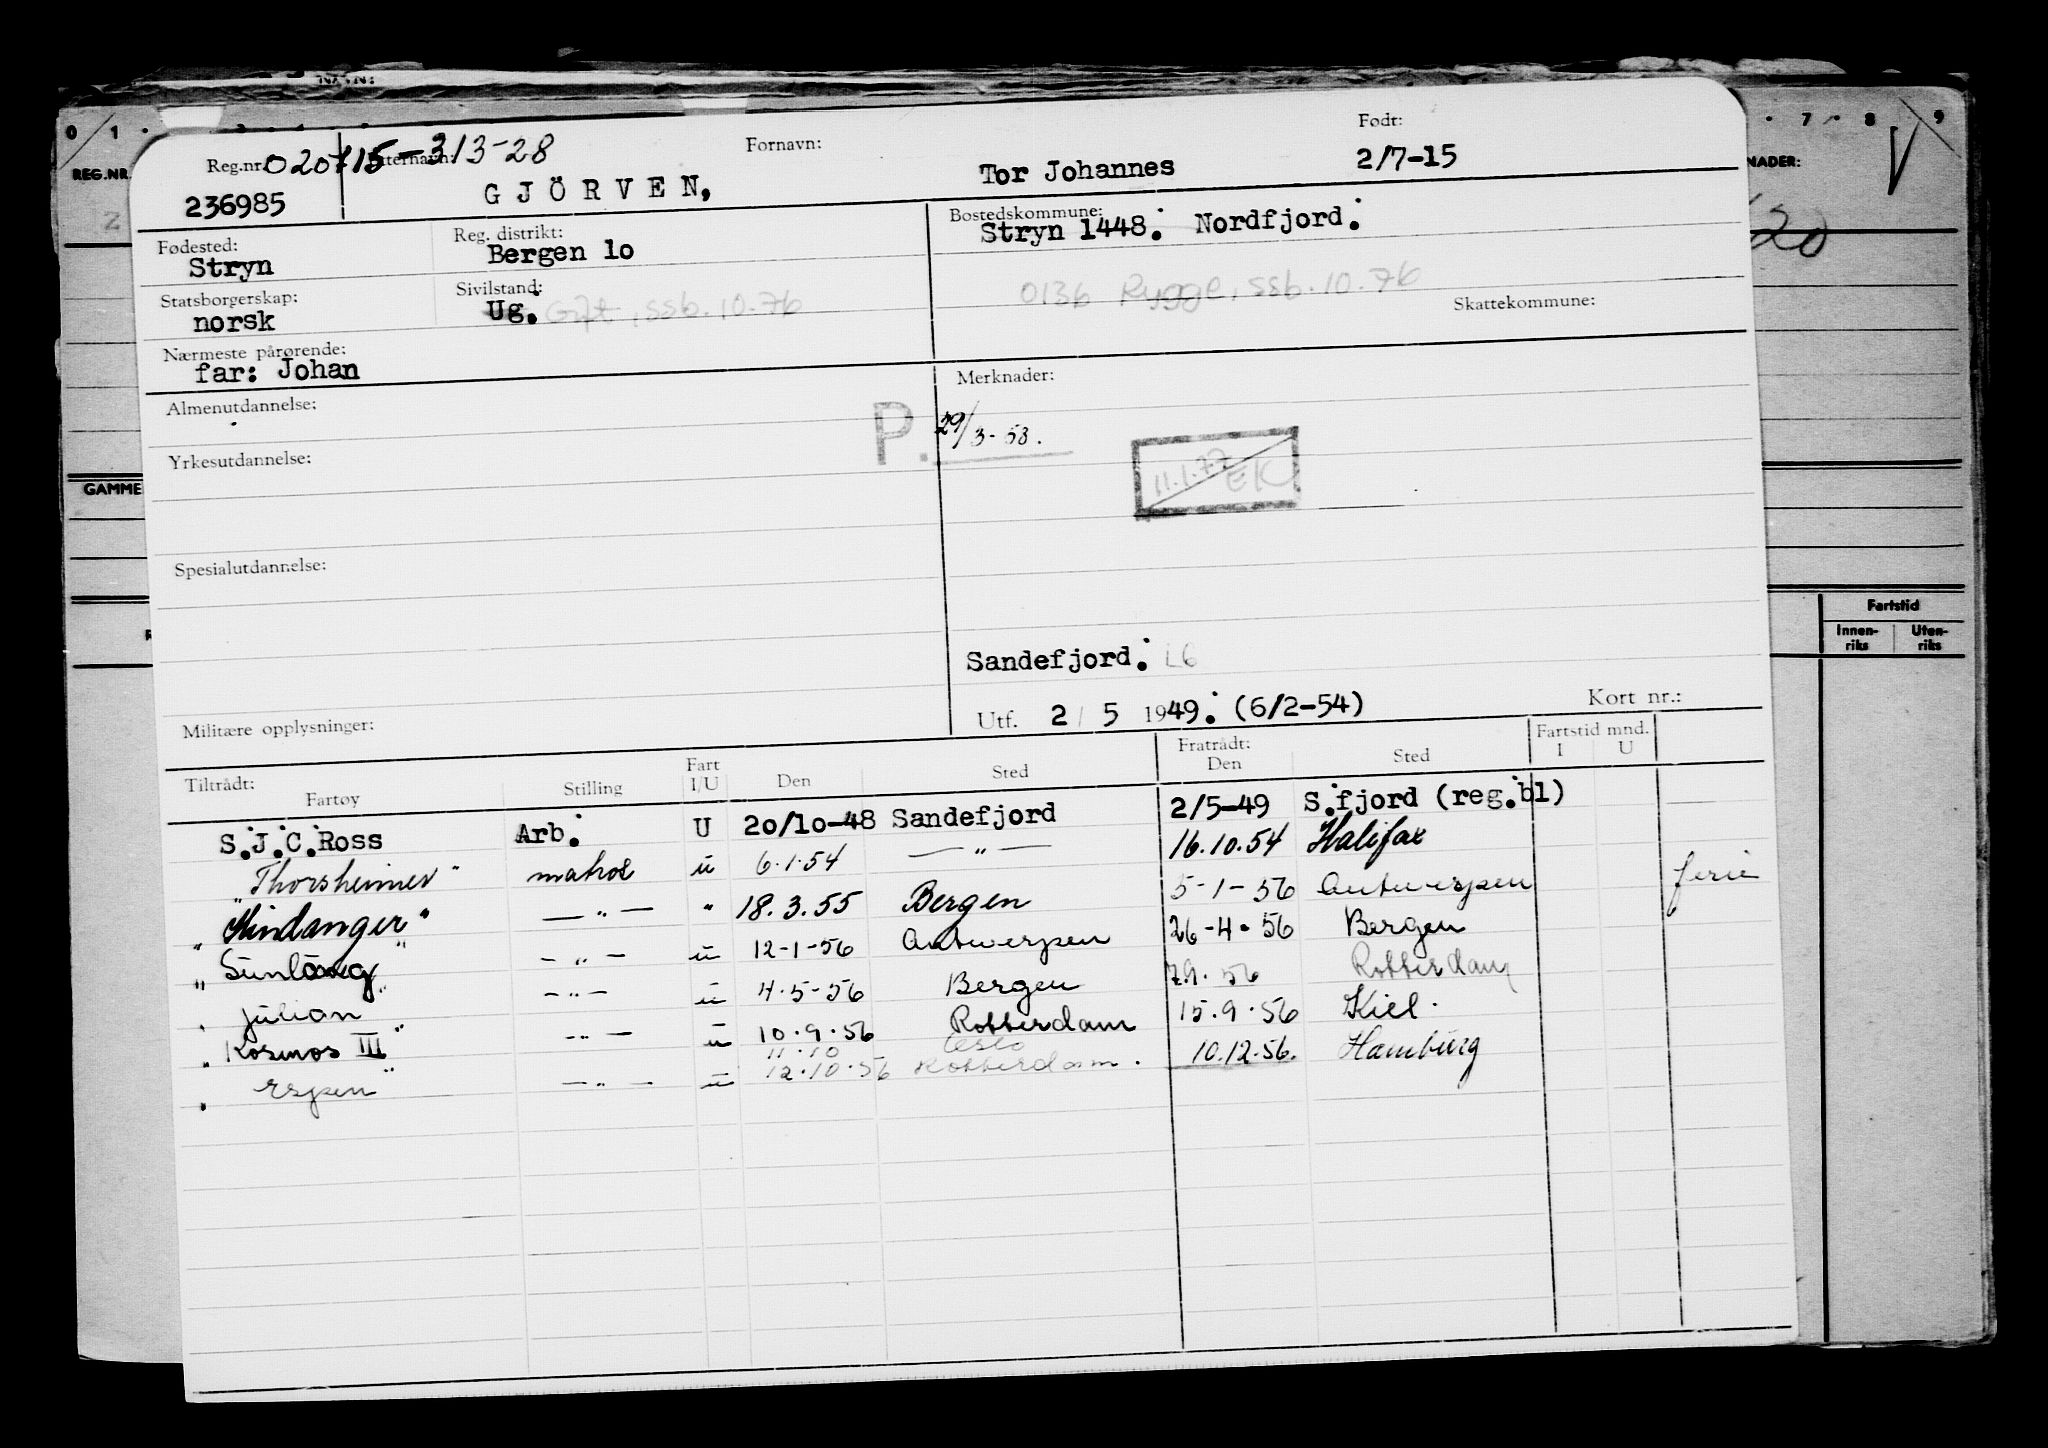 0 1 7 8 9
REG.NR. NADER:
Reg.nr. 020715-313-28 Etternavn: Fornavn: Født:
236985 GJÖRVEN, Tor Johannes 2/7-15
Fødested: Reg. distrikt: Bostedskommune:
Stryn Bergen 1o Stryn 1448. Nordfjord.
Statsborgerskap: Sivilstand:
norsk Ug. Gift, ssb. 10.76 0136 Rygge, ssb. 10.76
Skattekommune:
Nærmeste pårørende:
far: Johan
Almenutdannelse: Merknader:
P. 29/3-53.
Yrkesutdannelse: 11.1.77 EK
GAMME
Spesialutdannelse:
Fartstid
Innen-riks Uten-riks
Sandefjord. L6
Militære opplysninger: Utf. 2/5 1949. (6/2-54) Kort nr.:
Tiltrådt: Fratrådt: Fartstid mnd.
Fartøy Stilling Fart I/U Den Sted Den Sted I U
S.J.C.Ross Arb. U 2o/1o-48 Sandefjord 2/5-49 S.fjord (reg.bl)
"Thorsheimer" matros u 6.1.54 — " — 16.10.54 Halifax
"Hindanger" — " — " 18.3.55 Bergen 5-1-56 Antwerpen ferie
" — " — u 12-1-56 Antwerpen 26-4-56 Bergen
" Julian " — " — u 4-5-56 Bergen 7.9.56 Rotterdam
" Kosmos III " — " — u 10.9.56 Rotterdam 15.9.56 Kiel.
11.10 Oslo
" Espen " — " — u 12.10.56 Rotterdam. 10.12.56. Hamburg